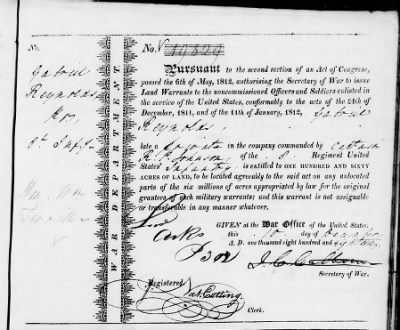 No.
No. 10829
Gabriel
Reynolds
Pursuant to the second section of an Act of Congress,
passed the 6th of May, 1812, authorising the Secretary of War to issue
Land Warrants to the noncommissioned Officers and Soldiers enlisted in
the service of the United States, conformably to the acts of the 24th of
December, 1811, and of the 11th of January, 1812, Gabriel
Reynolds
late a private in the company commanded by Captain
R. Johnson of the 8 Regiment United
States Infantry is ENTITLED TO ONE HUNDRED AND SIXTY
ACRES OF LAND, to be located agreeably to the said act on any unlocated
parts of the six millions of acres appropriated by law for the original
grantees of such military warrants; and this warrant is not assignable
or transferable in any manner whatever.
WAR DEPARTMENT
GIVEN at the War Office of the United
States, this 10 day of
A. D. one thousand eight hundred and
J. C. Calhoun
Secretary of War.
Registered
Cutting
Clerk.